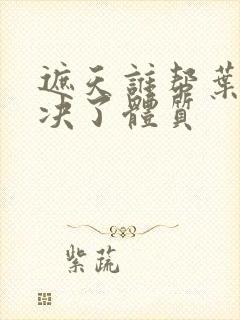 遮天誰幫葉
决了體質
紫蔬